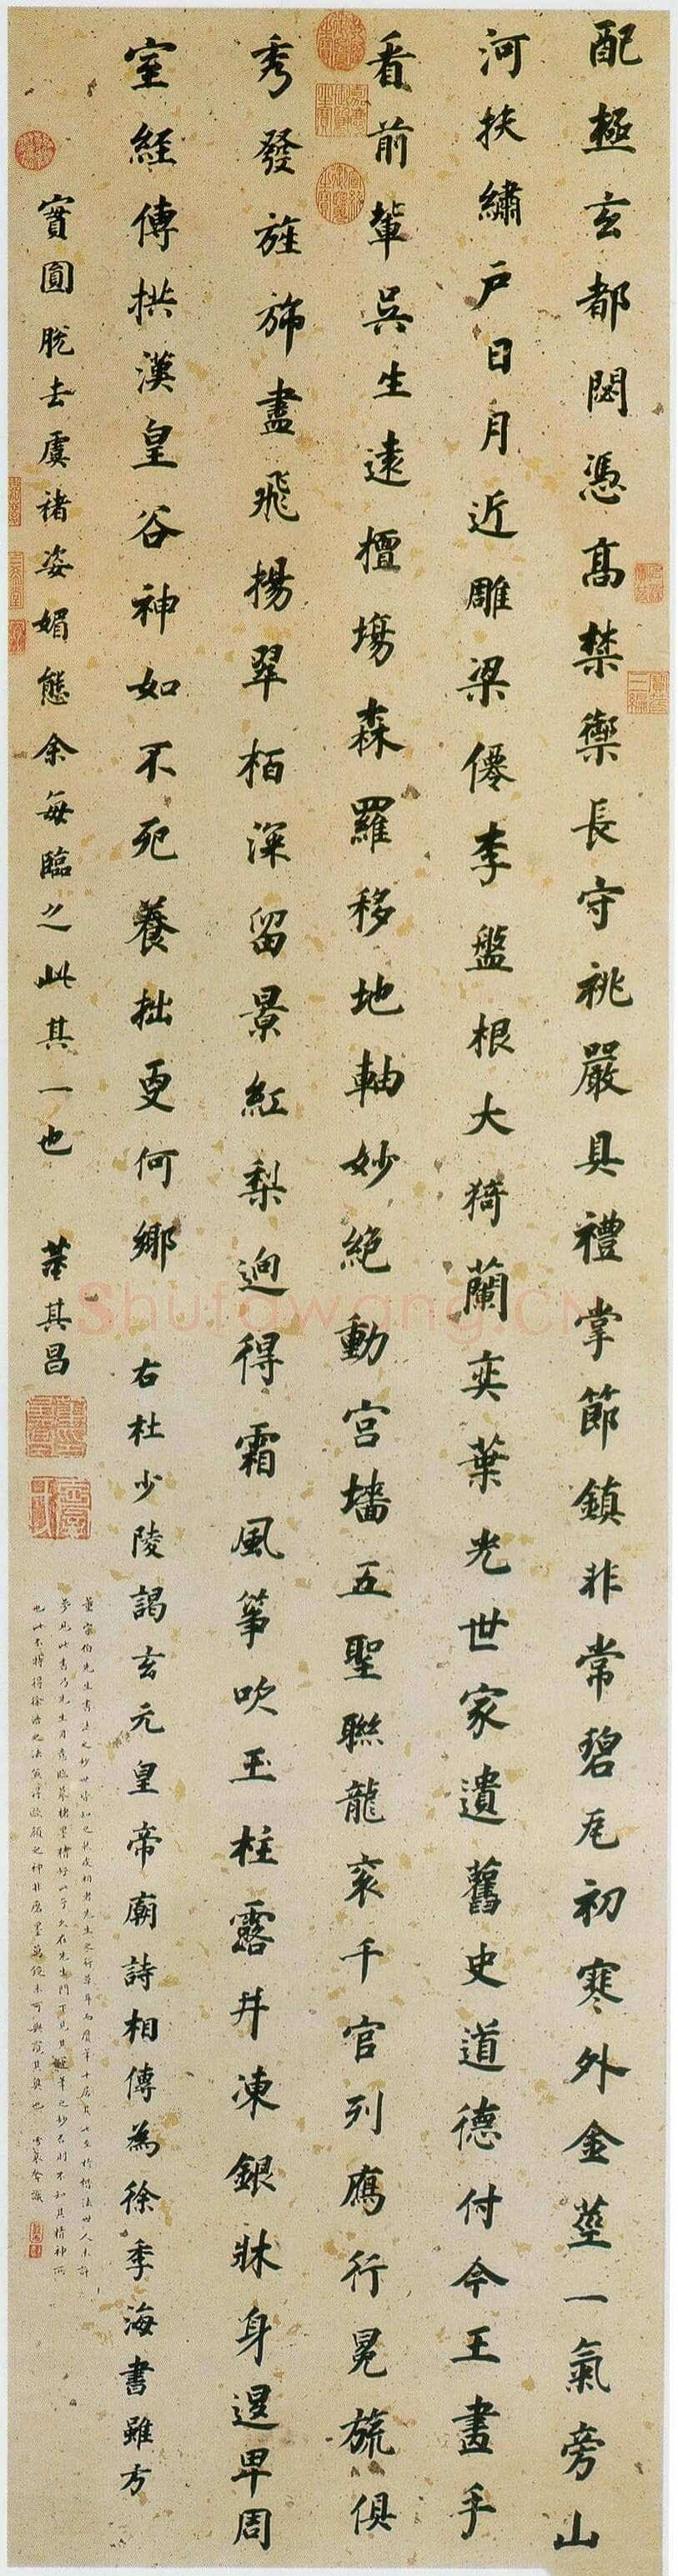 配極玄都閟憑高禁禦長守祧嚴具禮掌節鎮非常碧瓦初寒外金莖一氣旁山
河扶繡戶日月近雕梁僊李盤根大猗蘭奕葉光世家遺舊史道德付今王畫手
看前輩吳生遠擅場森羅移地軸妙絕動宮墻五聖聯龍袞千官列鴈行冕旒俱
秀發旌旆盡飛揚翠栢深留景紅梨迥得霜風箏吹玉柱露井凍銀牀身退卑周
室經傳拱漢皇谷神如不死養拙更何鄉 右杜少陵謁玄元皇帝廟詩相傳為徐季海書雖方
實圓脫去虞褚姿媚態余每臨之此其一也 董其昌
董宗伯先生書法之妙世皆知之
Shufawang.CN